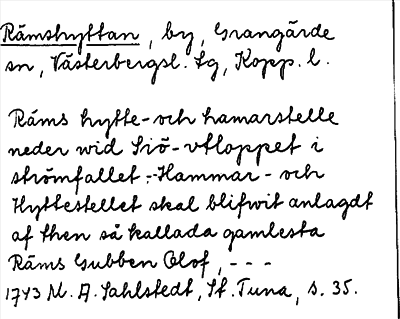 Rämshyttan, by, Grangärde
sn, Västerbergsl. tg, Kopp. l.
Räms hytte- och hamarstelle
neder wid Siö-vtloppet i
strömfallet.-Hammar- och
Hyttestellet skal blifwit anlagdt
af then så kallada gamlesta
Räms Gubben Olof, - - -
1743 M. A. Sahlstedt, St. Tuna, s. 35.